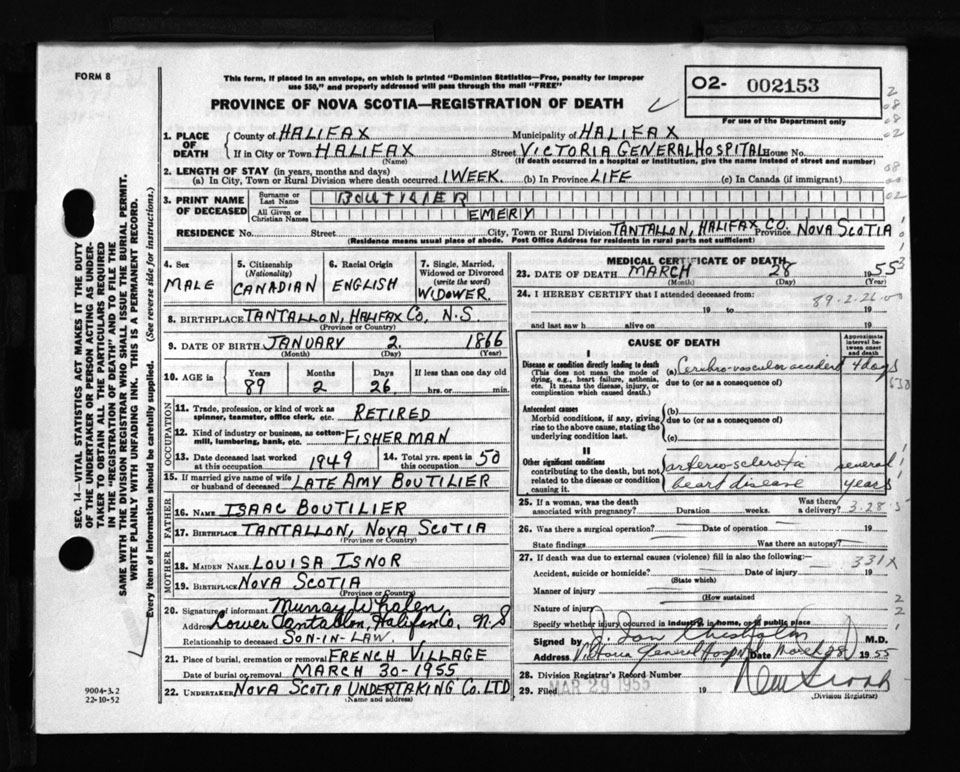 FORM 8
This form, if placed in an envelope, on which is printed "Dominion Statistics—Free, penalty for improper
use $50," and properly addressed will pass through the mail "FREE"
O2- 002153
For use of the Department only
PROVINCE OF NOVA SCOTIA—REGISTRATION OF DEATH
SEC. 14—VITAL STATISTICS ACT MAKES IT THE DUTY
OF THE UNDERTAKER OR PERSON ACTING AS UNDER-
TAKER TO OBTAIN ALL THE PARTICULARS REQUIRED
IN THE "REGISTRATION OF DEATH" AND TO FILE THE
SAME WITH THE DIVISION REGISTRAR WHO SHALL ISSUE THE BURIAL PERMIT.
WRITE PLAINLY WITH UNFADING INK. THIS IS A PERMANENT RECORD.
Every item of information should be carefully supplied. (See reverse side for instructions.)
1. PLACE OF DEATH County of HALIFAX Municipality of HALIFAX
If in City or Town HALIFAX Street VICTORIA GENERAL HOSPITAL House No.
(Name) (If death occurred in a hospital or institution, give the name instead of street and number)
2. LENGTH OF STAY (in years, months and days)
(a) In City, Town or Rural Division where death occurred 1 WEEK. (b) In Province LIFE (c) In Canada (if immigrant)
3. PRINT NAME OF DECEASED Surname or Last Name BOUTILIER
All Given or Christian Names EMERY
RESIDENCE No. Street City, Town or Rural Division TANTALLON, HALIFAX CO. Province NOVA SCOTIA
(Residence means usual place of abode. Post Office Address for residents in rural parts not sufficient)
4. Sex MALE
5. Citizenship (Nationality) CANADIAN
6. Racial Origin ENGLISH
7. Single, Married, Widowed or Divorced (write the word) WIDOWER.
8. BIRTHPLACE TANTALLON, HALIFAX CO, N.S.
(Province or Country)
9. DATE OF BIRTH JANUARY 2. 1866
(Month) (Day) (Year)
10. AGE in Years 89 Months 2 Days 26 If less than one day old hrs. or min.
OCCUPATION
11. Trade, profession, or kind of work as spinner, teamster, office clerk, etc. RETIRED
12. Kind of industry or business, as cotton-mill, lumbering, bank, etc. FISHERMAN
13. Date deceased last worked at this occupation 1949 14. Total yrs. spent in this occupation 50
15. If married give name of wife or husband of deceased LATE AMY BOUTILIER
FATHER
16. NAME ISAAC BOUTILIER
17. BIRTHPLACE TANTALLON, NOVA SCOTIA
(Province or Country)
MOTHER
18. MAIDEN NAME LOUISA ISNOR
19. BIRTHPLACE NOVA SCOTIA
(Province or Country)
20. Signature of informant Murray Whalen
Address Lower Tantallon, Halifax Co, N.S
Relationship to deceased SON-IN-LAW.
21. Place of burial, cremation or removal FRENCH VILLAGE
Date of burial or removal MARCH 30-1955
22. UNDERTAKER NOVA SCOTIA UNDERTAKING CO. LTD
(Name and address)
9004-3.2
22-10-52
MEDICAL CERTIFICATE OF DEATH
23. DATE OF DEATH MARCH 28 1955
(Month) (Day) (Year)
24. I HEREBY CERTIFY that I attended deceased from:
89-2-26-00
19 to 19
and last saw h alive on 19
CAUSE OF DEATH
Approximate interval between onset and death
I
Disease or condition directly leading to death (a) Cerebro-vascular accident 4 days
(This does not mean the mode of dying, e.g., heart failure, asthenia, etc. It means the disease, injury, or complication which caused death.)
due to (or as a consequence of)
Antecedent causes
Morbid conditions, if any, giving rise to the above cause, stating the underlying condition last.
(b)
due to (or as a consequence of)
(c)
II
Other significant conditions contributing to the death, but not related to the disease or condition causing it.
arterio-sclerotic heart disease several years
25. If a woman, was the death associated with pregnancy? Duration weeks. Was there a delivery? 3-28-5
26. Was there a surgical operation? Date of operation 19
State findings Was there an autopsy?
27. If death was due to external causes (violence) fill in also the following:— 331X
Accident, suicide or homicide? Date of injury 19
(State which)
Manner of injury
(How sustained
Nature of injury
Specify whether injury occurred in industry, in home, or in public place
Signed by J. Ian Chisholm M.D.
Address Victoria General Hospital Date March 28 1955
28. Division Registrar's Record Number
29. Filed MAR 29 1955 19
(Division Registrar)